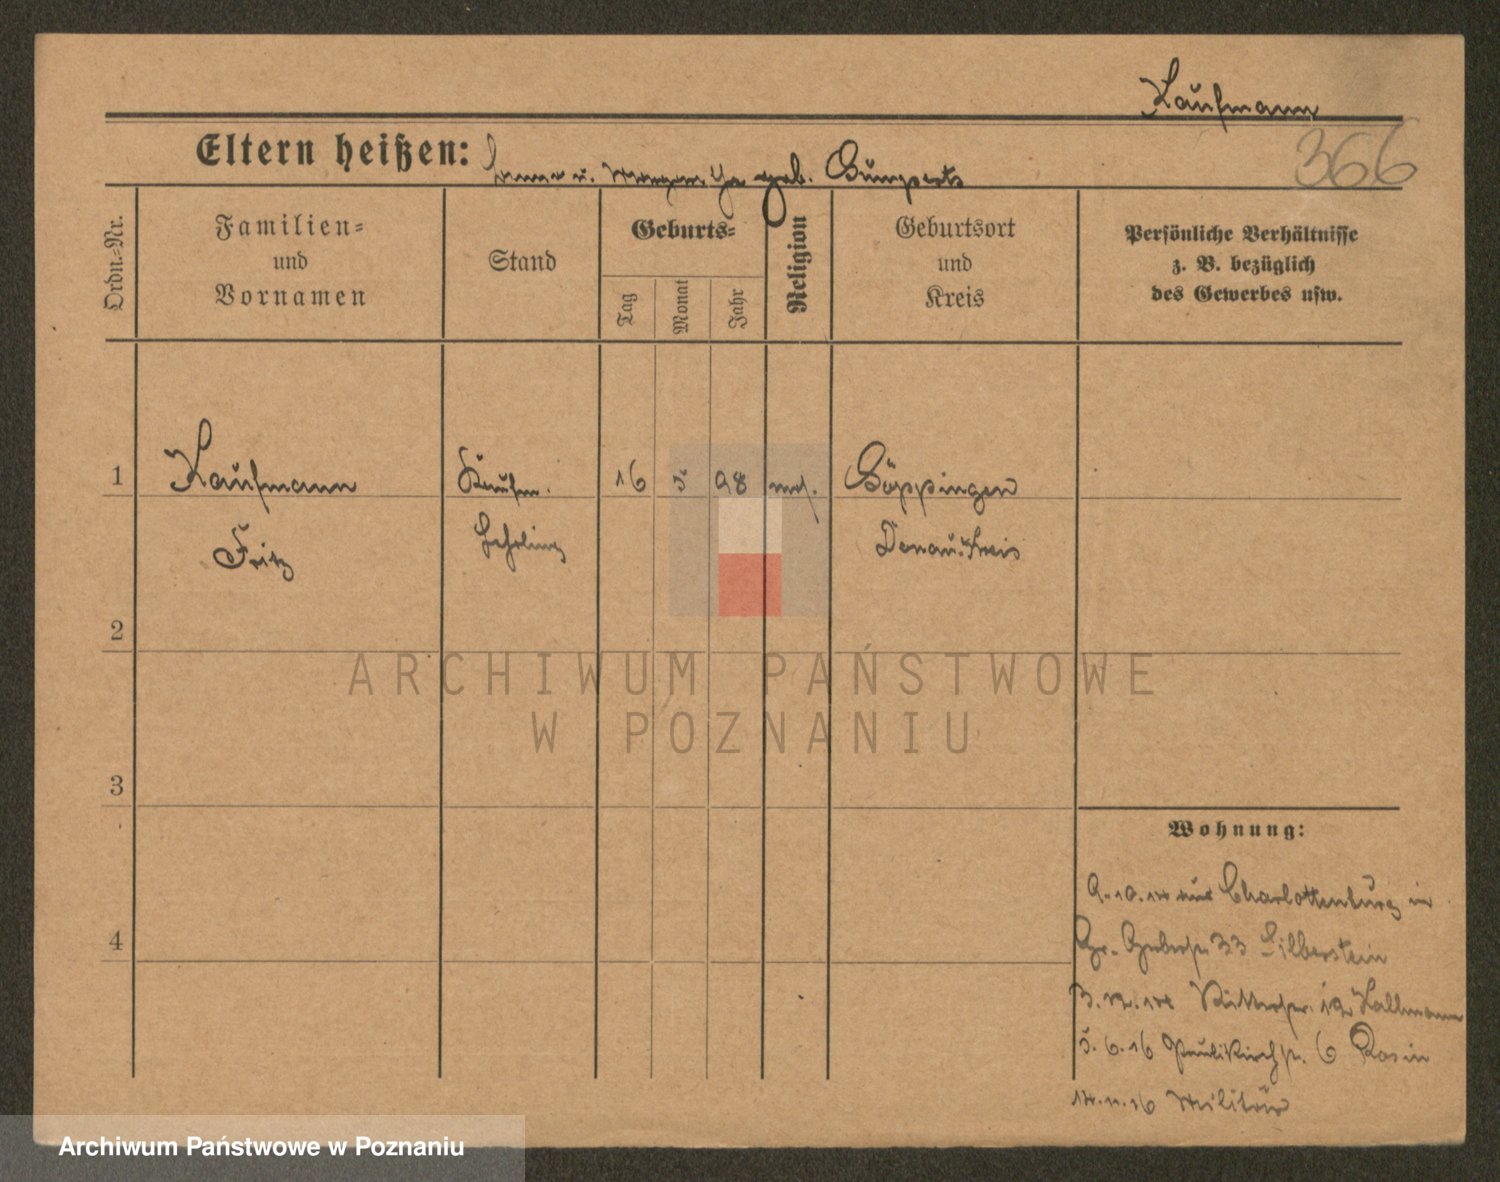 Kaufmann
366
Eltern heißen: u. geb. Gumperts
Ordn.-Nr.
Familien-
und
Vornamen
Stand
Geburts-
Tag
Monat
Jahr
Religion
Geburtsort
und
Kreis
Persönliche Verhältnisse
z. B. bezüglich
des Gewerbes usw.
1 Kaufmann Kaufm. 16 5 98 mos. Göppingen
Fritz Lehrling Donau-Kreis
2
3
4
Wohnung:
9.10.14 aus Charlottenburg in
33 Silberstein
3.12.14 Ritterstr. 12 Kallmann
5.6.16 Paulikirchstr. 6 Rosin
14.11.16 Militär
ARCHIWUM PAŃSTWOWE
W POZNANIU
Archiwum Państwowe w Poznaniu